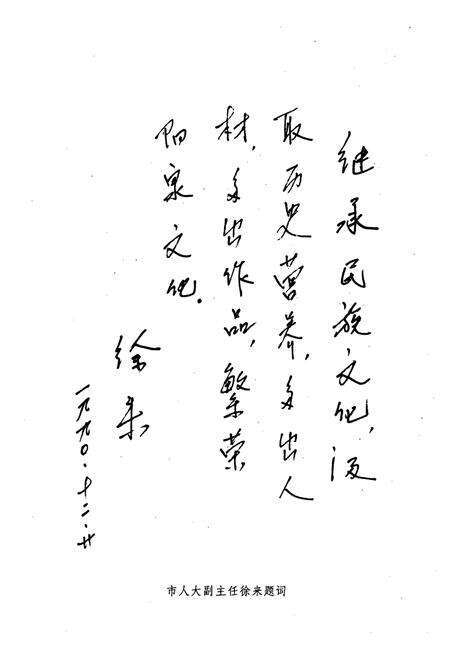 继承民族文化，汲
取历史营养，多出人
材，多出作品，繁荣
阳泉文化。
徐来
一九九〇·十二·廿
市人大副主任徐来题词